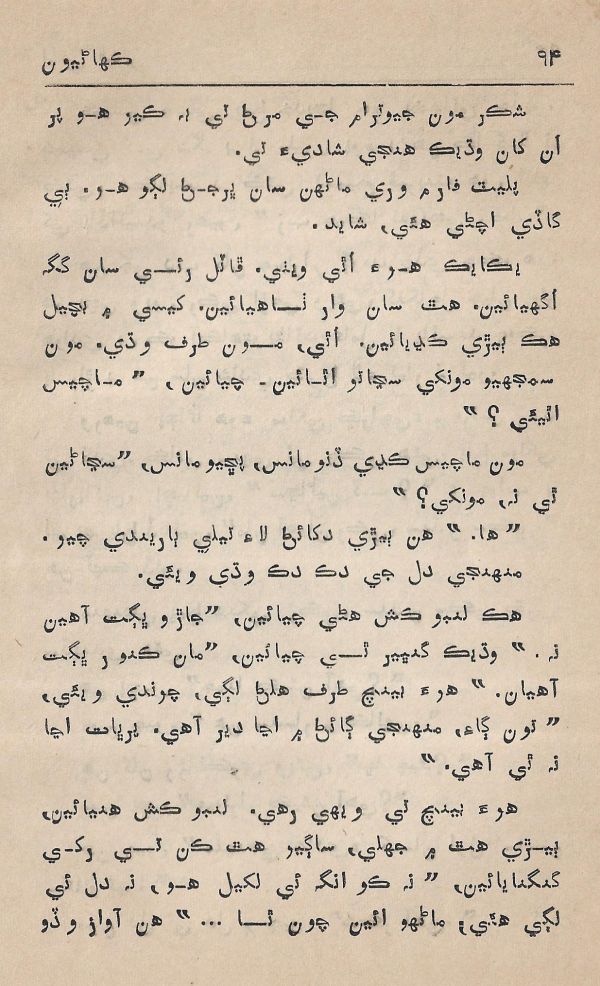 ۹۴ ڪهاڻيون
شڪر مون جيوٽرام جي مرڻ تي بہ ڪير هو پر
اُن کان وڌيڪ هنجي شاديءَ تي.
پليٽ فارم وري ماڻهن سان ڀرجڻ لڳو هو. ٻي
گاڏي اچڻي هئي، شايد.
يڪايڪ هوءَ اُٿي ويٺي. ڦاٽل رئي سان گگہ
اُگهيائين. هٿ سان وار ٺاهيائين. کيسي ۾ بچيل
هڪ ٻيڙي ڪڍيائين. اُٿي، مون طرف وڌي. مون
سمجهيو مونکي سڃاتو اٿائين. چيائين، ”ماچيس
اٿيئي ؟ “
مون ماچيس ڪڍي ڏنو مانس، پڇيو مانس، ”سڃاڻين
ٿي نہ، مونکي؟ “
”ها. “ هن ٻيڙي دکائڻ لاءِ تيلي ٻاريندي چيو.
منهنجي دل جي دڪ دڪ وڌي ويئي.
هڪ لنبو ڪش هڻي چيائين، ”جاڙو ڀڳت آهين
نہ. “ وڌيڪ گنڀير ٿي چيائين، ”مان ڪنور ڀڳت
آهيان. “ هوءَ بينچ طرف هلڻ لڳي، چوندي ويئي،
”تون ڳاءِ، منهنجي ڳائڻ ۾ اڃا دير آهي. پرڀات اڃا
نہ ٿي آهي. “
هوءَ بينچ تي ويهي رهي. لنبو ڪش هنيائين،
ٻيڙي هٿ ۾ جهلي، ساڳيو هٿ ڪن تي رکي
گنگنايائين، ”نہ ڪو انگہ ئي لکيل هو، نہ دل ئي
لڳي هئي؛ ماڻهو ائين چون ٿا ... “ هن آواز وڏو